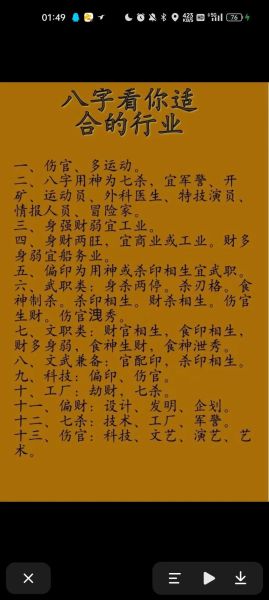 01:49
76
八字看你适
合的行业
一、伤官、多运动。
二、八字用神为七杀，宜军警、开
矿、运动员、外科医生、特技演员、
情报人员、冒险家。
三、身强财弱宜工业。
四、身财两旺，宜商业或工业。财多
身弱宜船务业。
五、偏印为用神或杀印相生宜武职。
六、武职类：身杀两停。杀刃格。食
神制杀。杀印相生。财杀相生。伤官
生财。伤官洩秀。
七、文职类：财官相生，食印相生，
财多身弱，食神生财，食神泄秀。
八、文武兼备：官配印，杀印相生。
九、科技：偏印、伤官。
十、工厂：劫财，七杀。
十一、偏财：设计、发明、企划。
十二、七杀：技术、工厂、军警。
十三、伤官：科技、文艺、演艺、艺
术。